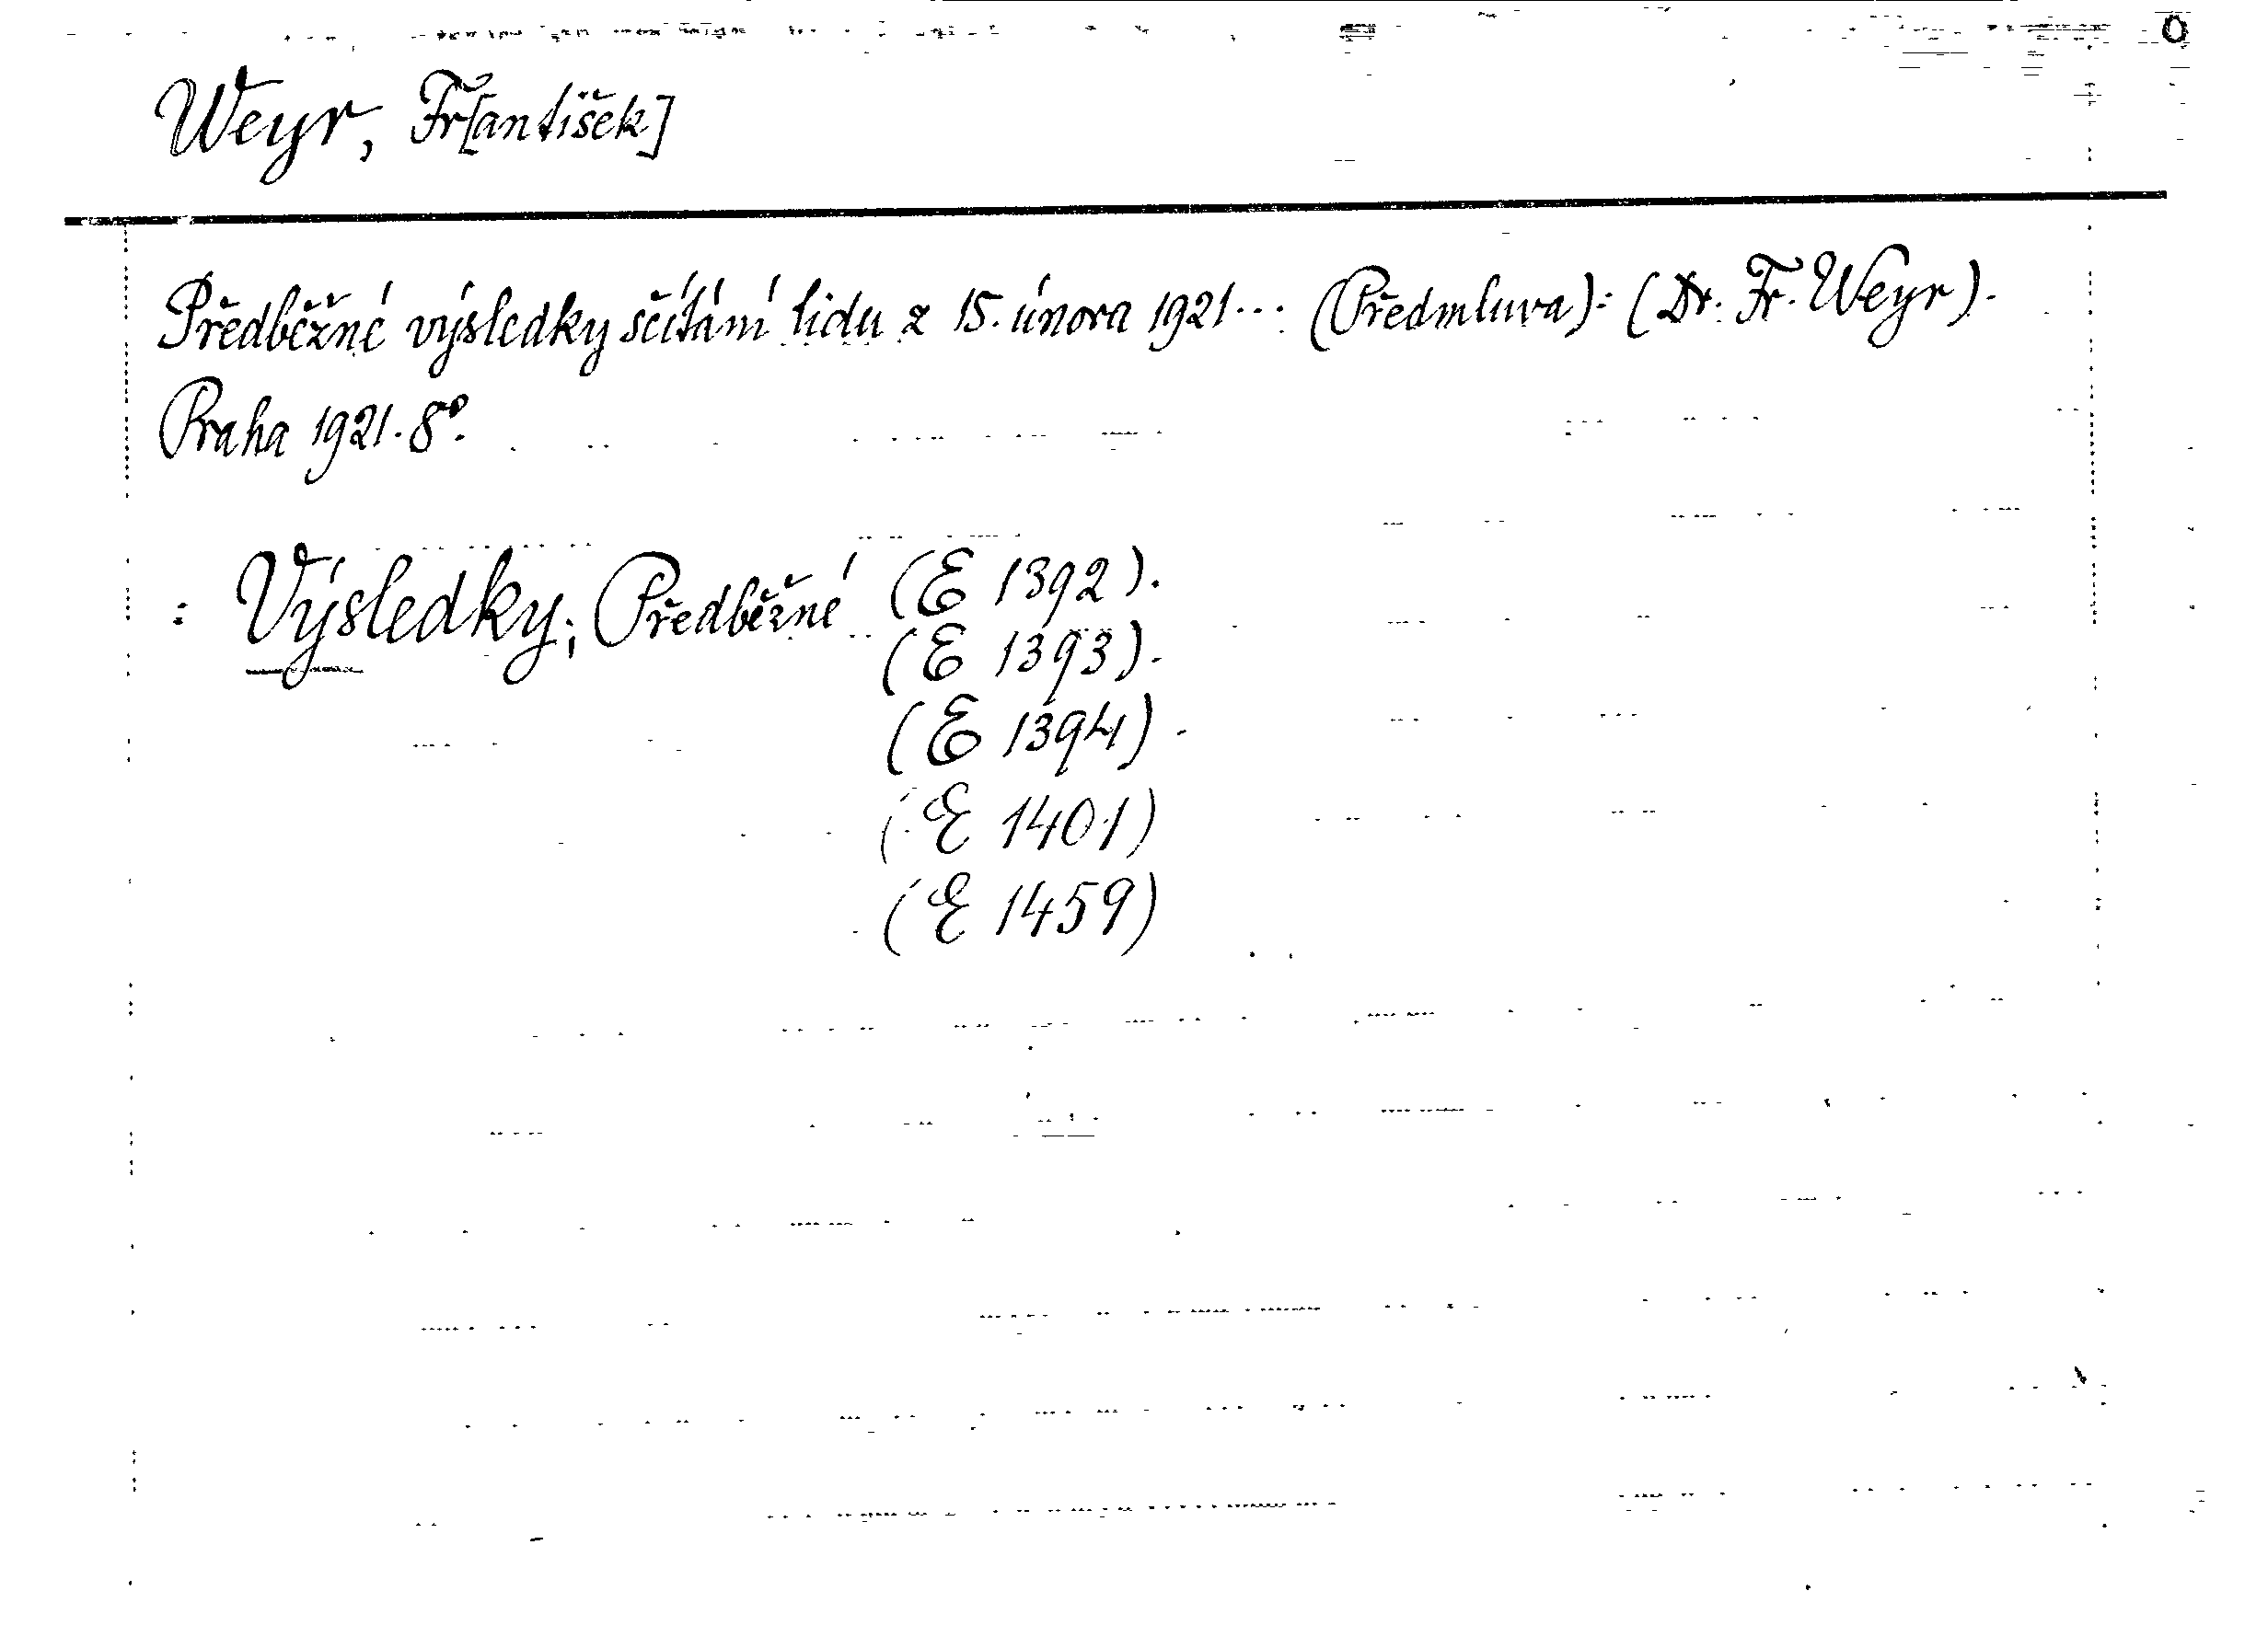 Weyr, Fr[antišek]
Předběžné výsledky sčítání lidu z 15. února 1921... (Předmluva): (Dr. Fr. Weyr).
Praha 1921. 8°.
: Výsledky; Předběžné (E 1392).
(E 1393).
(E 1394).
(E 1401)
(E 1459)